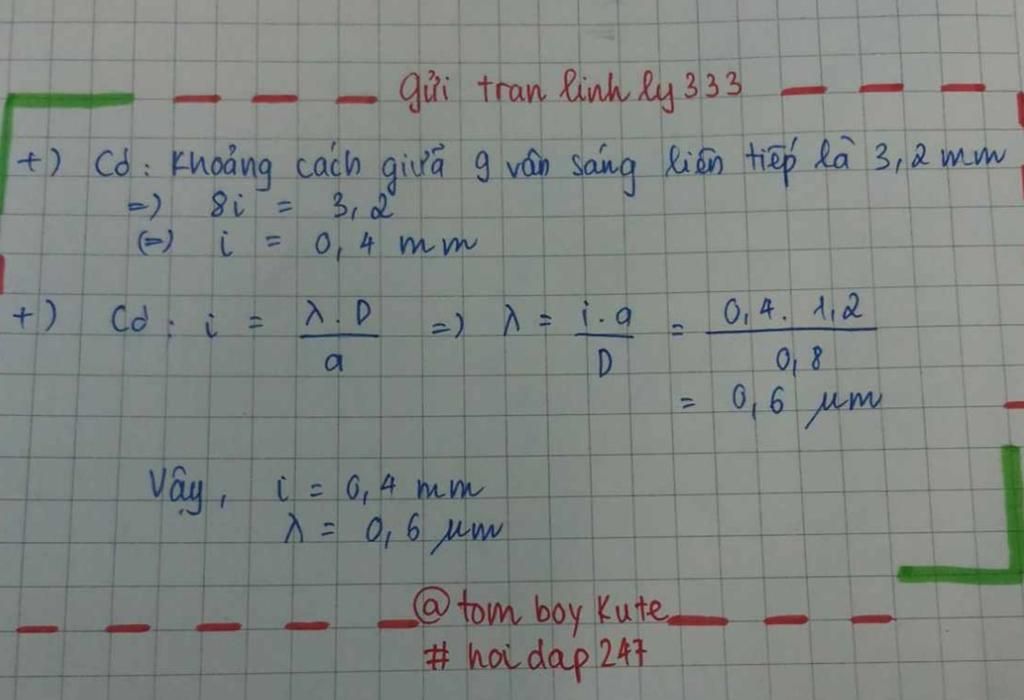 gửi tran linh ly 333
+) Có : Khoảng cách giữa 9 vân sáng liên tiếp là 3,2 mm
=) 8i = 3,2
(=) i = 0,4 mm
+) Có : i = λ.D / a =) λ = i.a / D = 0,4. 1,2 / 0,8
= 0,6 μm
Vậy, i = 0,4 mm
λ = 0,6 μm
@ tom boy Kute
# hoi dap 247